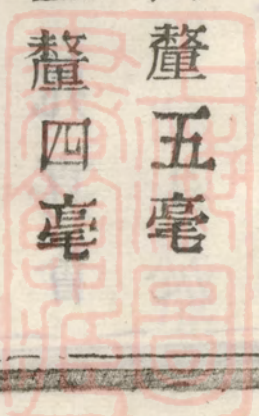 釐五毫
釐四毫